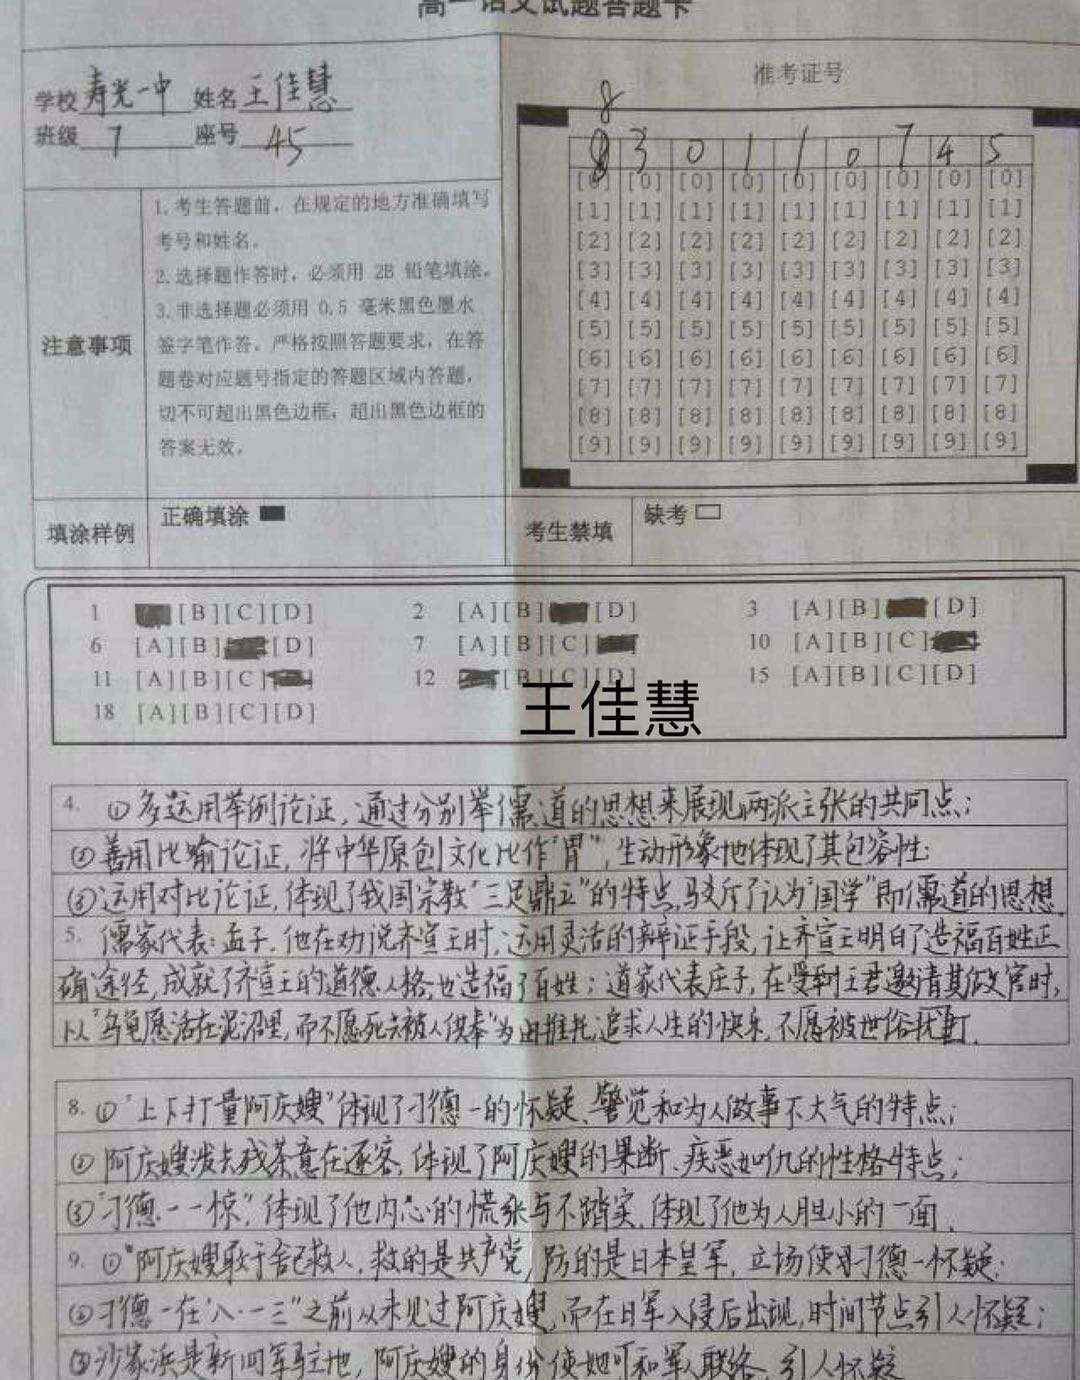 高一语文试题答题卡
学校 寿光一中 姓名 王佳慧
班级 7 座号 45
准考证号
8
8 3 0 1 1 0 7 4 5
[0] [0] [0] [0] [0] [0] [0] [0] [0]
[1] [1] [1] [1] [1] [1] [1] [1] [1]
[2] [2] [2] [2] [2] [2] [2] [2] [2]
[3] [3] [3] [3] [3] [3] [3] [3] [3]
[4] [4] [4] [4] [4] [4] [4] [4] [4]
[5] [5] [5] [5] [5] [5] [5] [5] [5]
[6] [6] [6] [6] [6] [6] [6] [6] [6]
[7] [7] [7] [7] [7] [7] [7] [7] [7]
[8] [8] [8] [8] [8] [8] [8] [8] [8]
[9] [9] [9] [9] [9] [9] [9] [9] [9]
注意事项
1.考生答题前，在规定的地方准确填写
考号和姓名。
2.选择题作答时，必须用 2B 铅笔填涂。
3.非选择题必须用 0.5 毫米黑色墨水
签字笔作答。严格按照答题要求，在答
题卷对应题号指定的答题区域内答题，
切不可超出黑色边框，超出黑色边框的
答案无效。
填涂样例 正确填涂 考生禁填 缺考
1 [B][C][D] 2 [A][B] [D] 3 [A][B] [D]
6 [A][B] [D] 7 [A][B][C] 10 [A][B][C]
11 [A][B][C] 12 [B][C][D] 15 [A][B][C][D]
18 [A][B][C][D]
王佳慧
4. ①多运用举例论证，通过分别举儒道的思想来展现两派主张的共同点；
②善用比喻论证，将中华原创文化比作"胃"，生动形象地体现了其包容性；
③运用对比论证，体现了我国宗教"三足鼎立"的特点，驳斥了认为"国学"即儒道的思想.
5. 儒家代表：孟子，他在劝说齐宣王时，运用灵活的辩证手段，让齐宣王明白了造福百姓正
确途径，成就了齐宣王的道德人格，也造福了百姓；道家代表庄子，在受到王君邀请其做官时，
以"乌龟愿活在泥沼里，而不愿死去被人供奉"为由推托，追求人生的快乐，不愿被世俗扰.
8. ①"上下打量阿庆嫂"体现了刁德一的怀疑、警觉和为人做事不大气的特点；
②阿庆嫂泼去残茶意在逐客，体现了阿庆嫂的果断、疾恶如仇的性格特点；
③"刁德一一惊"，体现了他内心的慌张与不踏实，体现了他为人胆小的一面.
9. ①"阿庆嫂敢于舍己救人，救的是共产党，防的是日本皇军，立场使刁德一怀疑；
②刁德一在"八·一三"之前从未见过阿庆嫂，而在日军入侵后出现，时间节点引人怀疑；
③沙家浜是新四军驻地，阿庆嫂的身份使她可和军人联络，引人怀疑